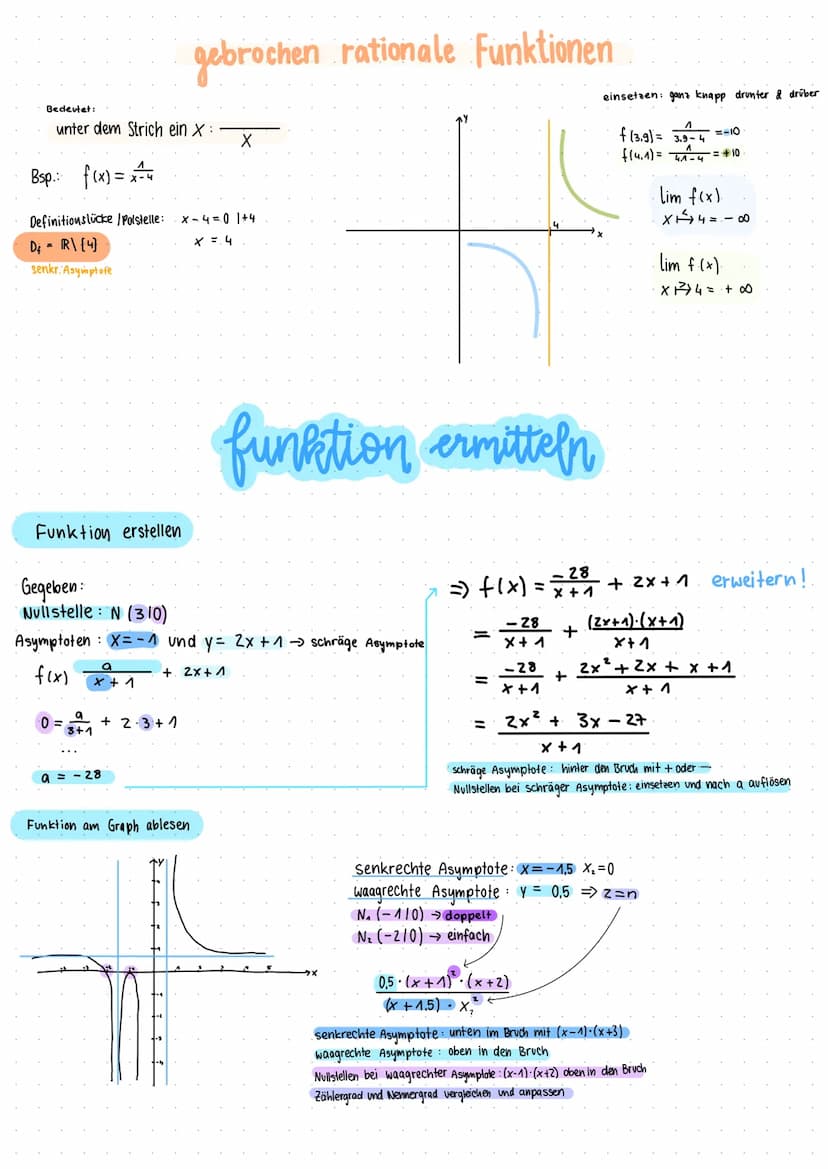 gebrochen rationale Funktionen
Bedeutet:
unter dem Strich ein X : ―
X
Bsp.: f(x) = 1/x-4
Definitionslücke /Polstelle: x - 4 = 0 |+4
x = 4
Df = ℝ\{4}
senkr. Asymptote
y
4
x
einsetzen: ganz knapp drunter & drüber
f(3,9) = 1/3.9-4 = -10
f(4,1) = 1/4.1-4 = +10
lim f(x)
x ↦< 4 = - ∞
lim f(x)
x ↦> 4 = + ∞
funktion ermitteln
Funktion erstellen
Gegeben:
Nullstelle: N (3|0)
Asymptoten : x = -1 und y = 2x + 1 → schräge Asymptote
f(x) a/x + 1 + 2x + 1
0 = a/3+1 + 2·3 + 1
...
a = -28
⇒ f(x) = -28/x + 1 + 2x + 1 erweitern!
= -28/x + 1 + (2x+1)·(x+1)/x + 1
= -28/x + 1 + 2x² + 2x + x + 1/x + 1
= 2x² + 3x - 27/x + 1
schräge Asymptote: hinter den Bruch mit + oder —
Nullstellen bei schräger Asymptote: einsetzen und nach a auflösen
Funktion am Graph ablesen
y
x
senkrechte Asymptote: x = -1,5 x₂ = 0
waagrechte Asymptote : y = 0,5 ⇒ z = n
N₁ (-1|0) → doppelt
N₂ (-2|0) → einfach
0,5 · (x + 1)² · (x + 2)
(x + 1.5) · x,²
senkrechte Asymptote: unten im Bruch mit (x-1)·(x+3)
waagrechte Asymptote : oben in den Bruch
Nullstellen bei waagrechter Asymptote: (x-1)·(x+2) oben in den Bruch
Zählergrad und Nennergrad vergleichen und anpassen